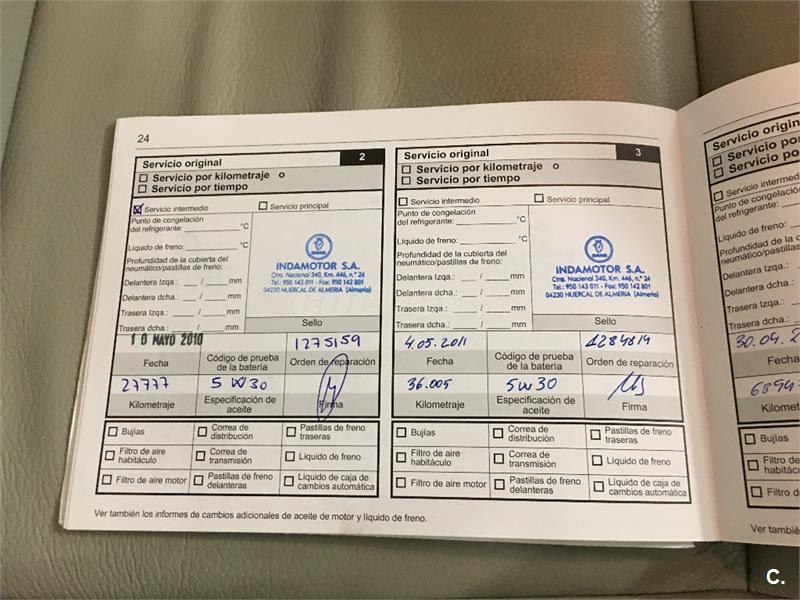 24
Servicio original 2
Servicio por kilometraje o
Servicio por tiempo
Servicio intermedio Servicio principal
Punto de congelación
del refrigerante: °C
Líquido de freno: °C
Profundidad de la cubierta del
neumático/pastillas de freno:
Delantera Izqa.: / mm
Delantera dcha.: / mm
Trasera Izqa.: / mm
Trasera dcha.: / mm
INDAMOTOR S.A.
Ctra. Nacional 340, Km. 446, n.º 24
Tel.: 950 143 011 - Fax: 950 142 801
04230 HUERCAL DE ALMERIA (Almería)
Sello
10 MAYO 2010 1275159
Fecha Código de prueba de la batería Orden de reparación
27777 5W30
Kilometraje Especificación de aceite Firma
Bujías Correa de distribución Pastillas de freno traseras
Filtro de aire habitáculo Correa de transmisión Líquido de freno
Filtro de aire motor Pastillas de freno delanteras Líquido de caja de cambios automática
Servicio original 3
Servicio por kilometraje o
Servicio por tiempo
Servicio intermedio Servicio principal
Punto de congelación
del refrigerante: °C
Líquido de freno: °C
Profundidad de la cubierta del
neumático/pastillas de freno:
Delantera Izqa.: / mm
Delantera dcha.: / mm
Trasera Izqa.: / mm
Trasera dcha.: / mm
INDAMOTOR S.A.
Ctra. Nacional 340, Km. 446, n.º 24
Tel.: 950 143 011 - Fax: 950 142 801
04230 HUERCAL DE ALMERIA (Almería)
Sello
4.05.2011 1284814
Fecha Código de prueba de la batería Orden de reparación
36.005 5W30
Kilometraje Especificación de aceite Firma
Bujías Correa de distribución Pastillas de freno traseras
Filtro de aire habitáculo Correa de transmisión Líquido de freno
Filtro de aire motor Pastillas de freno delanteras Líquido de caja de cambios automática
Ver también los informes de cambios adicionales de aceite de motor y líquido de freno.
Servicio origin
Servicio po
Servicio po
Servicio intermed
Punto de congelació
del refrigerante:
Líquido de freno:
Profundidad de la cu
neumático/pastillas
Delantera Izqa.:
Delantera dcha.:
Trasera Izqa.:
Trasera dcha.:
30.04.2
Fecha
6894
Kilomet
Bujías
Filtro de
habitácu
Filtro d
Ver tambié
C.